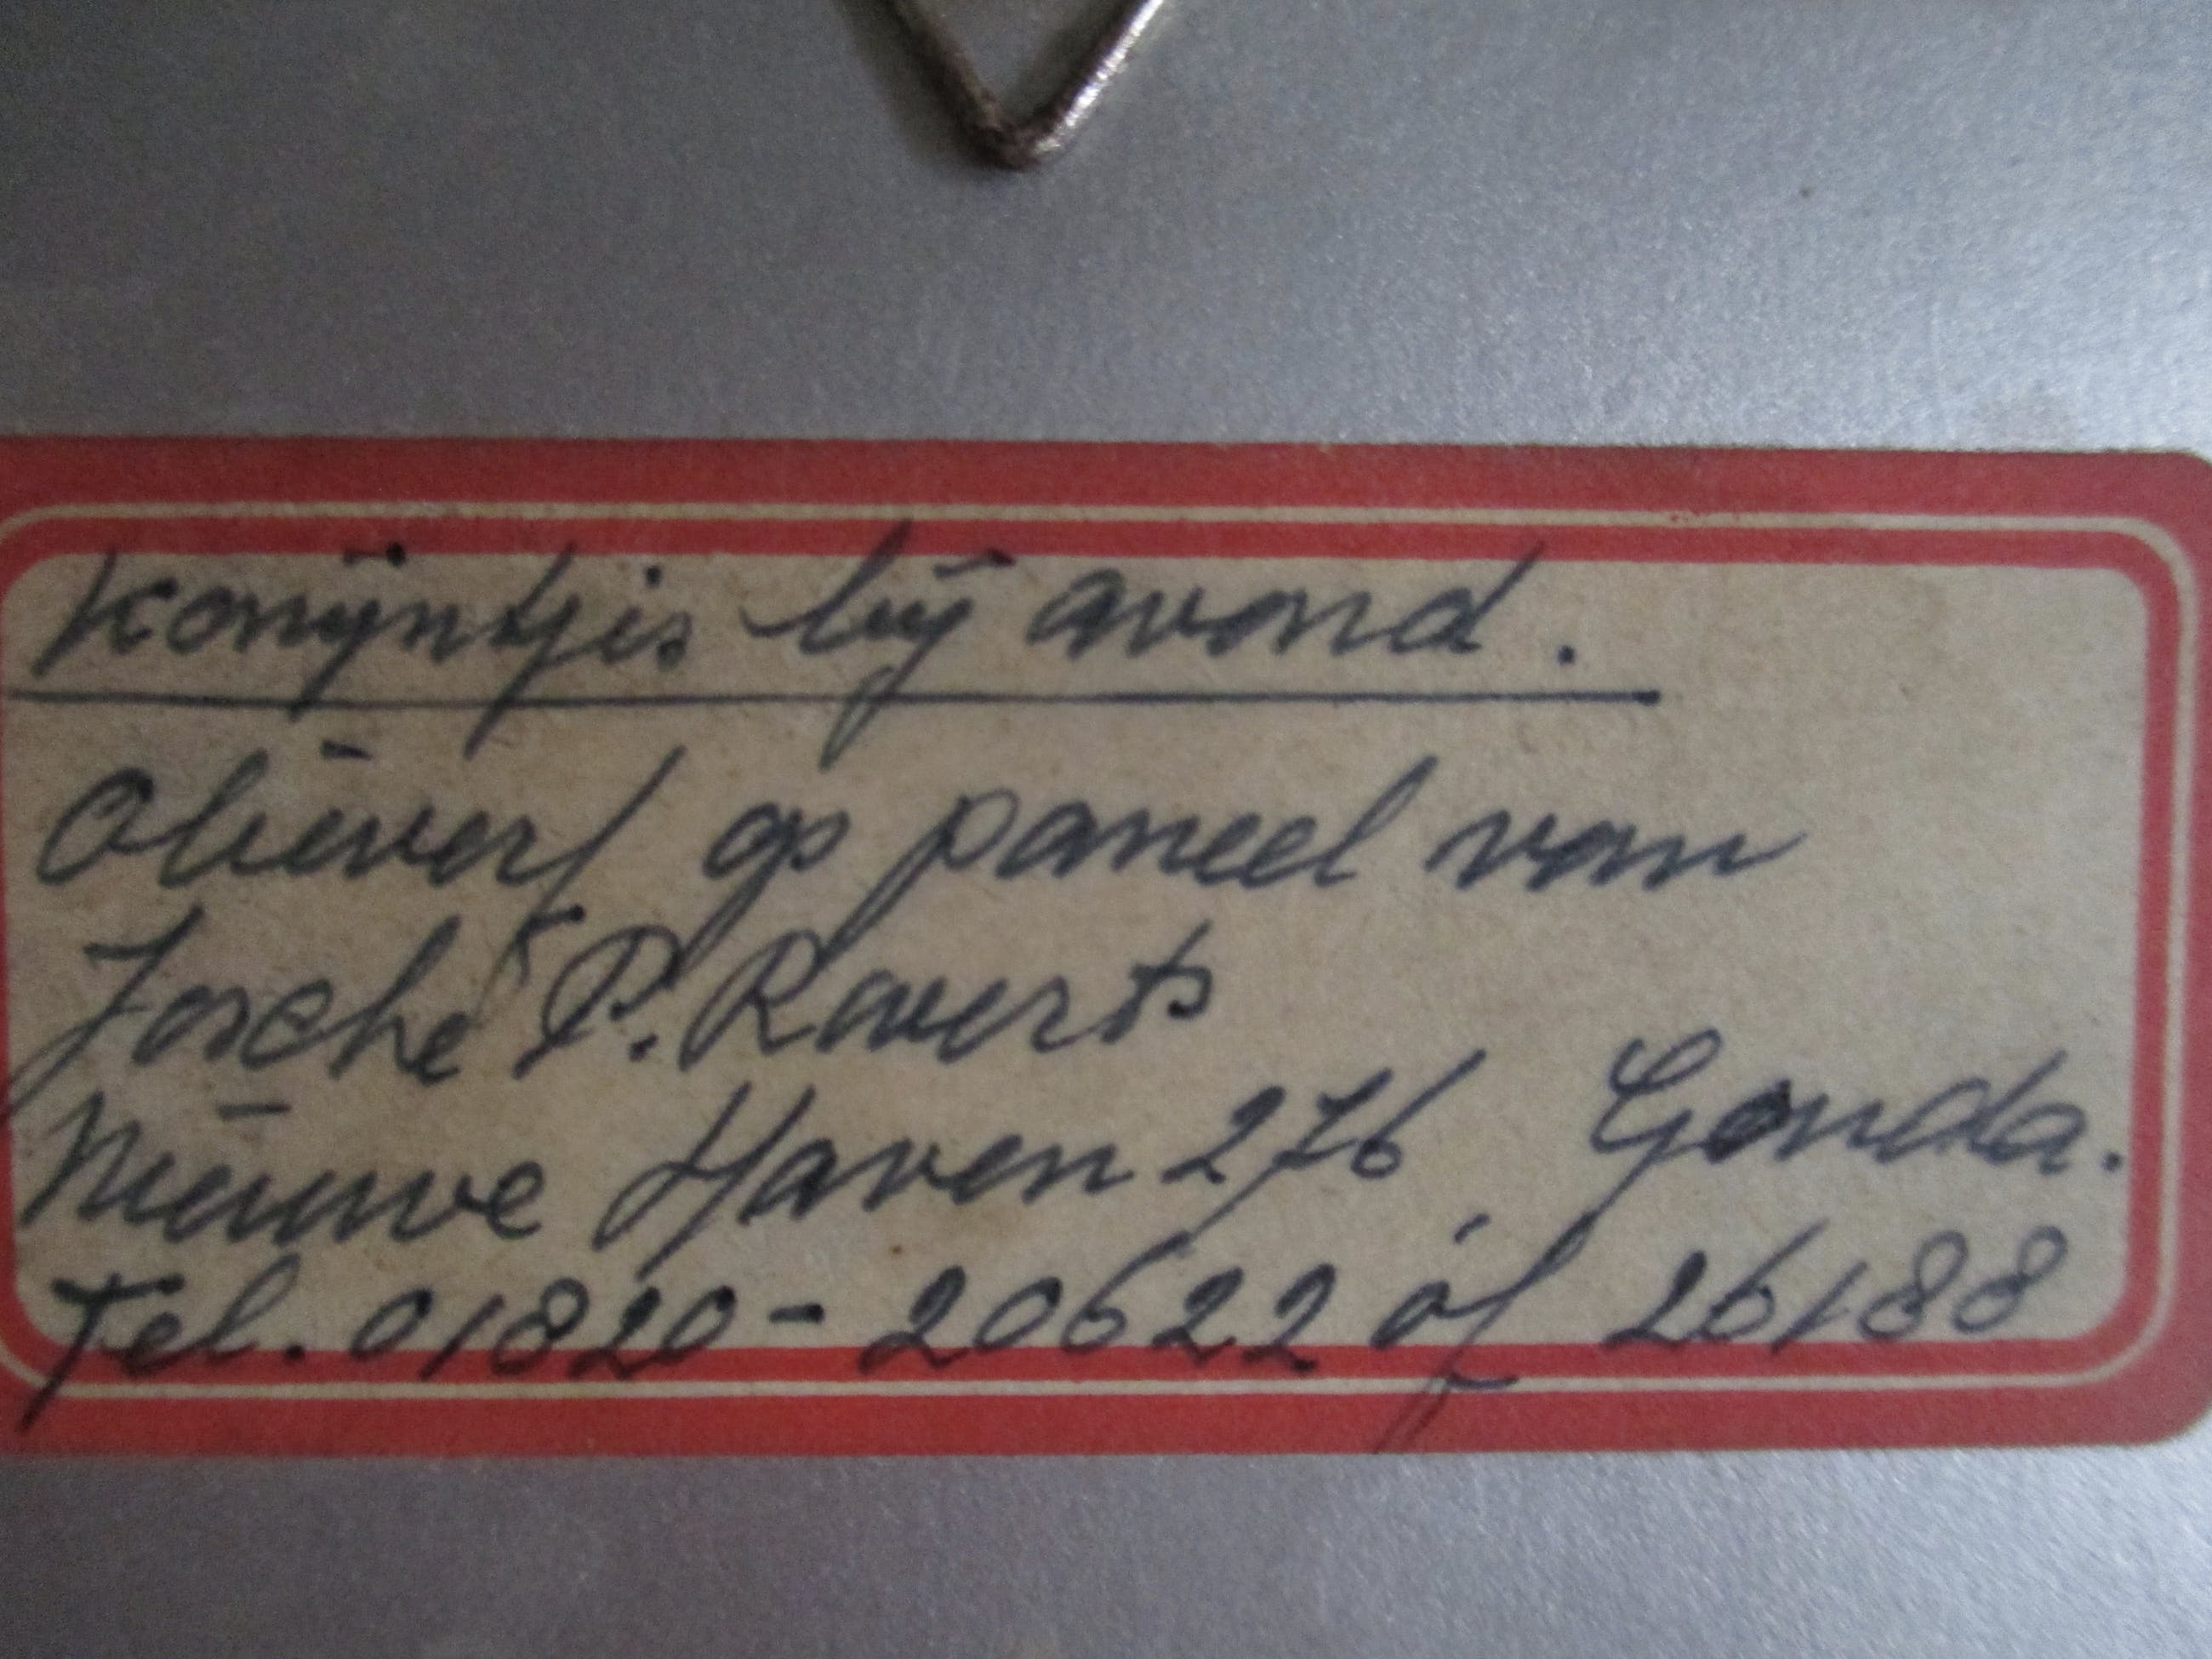 Konijntjes bij avond.
Olieverf op paneel van
Josche P. Raverts
Nieuwe Haven 276 Gouda.
Tel. 01820-20622 óf 26188